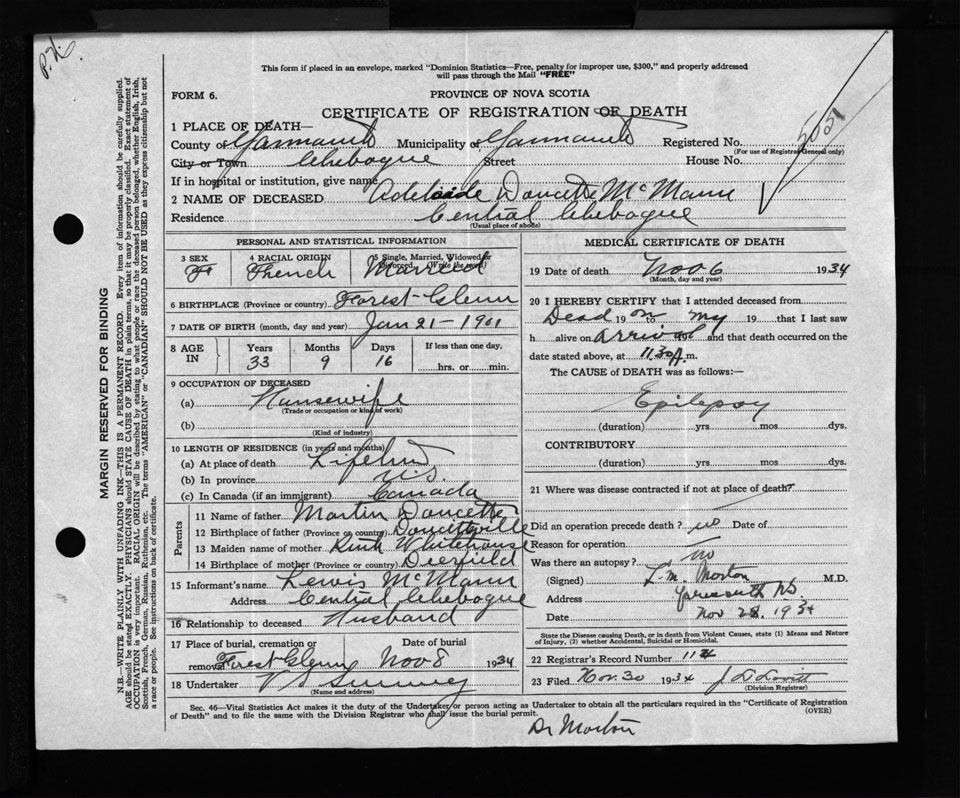 P.N.
This form if placed in an envelope, marked "Dominion Statistics—Free, penalty for improper use, $300," and properly addressed
will pass through the Mail "FREE"
FORM 6.
PROVINCE OF NOVA SCOTIA
CERTIFICATE OF REGISTRATION OF DEATH
5051
1 PLACE OF DEATH—
County of Yarmouth Municipality of Yarmouth Registered No.
(For use of Registrar General only)
City or Town Chebogue Street House No.
If in hospital or institution, give name
2 NAME OF DECEASED Adelaide Doucette McMann
Residence Central Chebogue
(Usual place of abode)
PERSONAL AND STATISTICAL INFORMATION
3 SEX 4 RACIAL ORIGIN 5 Single, Married, Widowed or Divorced (Write the word)
F French Married
6 BIRTHPLACE (Province or country) Forest Glenn
7 DATE OF BIRTH (month, day and year) Jan 21-1901
8 AGE IN Years Months Days If less than one day,
33 9 16 hrs. or min.
9 OCCUPATION OF DECEASED
(a) Housewife
(Trade or occupation or kind of work)
(b)
(Kind of industry)
10 LENGTH OF RESIDENCE (in years and months)
(a) At place of death Lifetime
(b) In province N.S.
(c) In Canada (if an immigrant) Canada
Parents
11 Name of father Martin Doucette
12 Birthplace of father (Province or country) Doucetteville
13 Maiden name of mother Whitehouse
14 Birthplace of mother (Province or country) Deerfield
15 Informant's name Lewis McMann
Address Central Chebogue
16 Relationship to deceased Husband
17 Place of burial, cremation or removal Forest Glenn Date of burial Nov 8 1934
18 Undertaker V S Sweeney
(Name and address)
MEDICAL CERTIFICATE OF DEATH
19 Date of death Nov 6 1934
(Month, day and year)
20 I HEREBY CERTIFY that I attended deceased from
Dead 19 on to my 19 that I last saw
h alive on arrival 19 and that death occurred on the
date stated above, at 11.30 A.m.
The CAUSE of DEATH was as follows:—
Epilepsy
(duration) yrs mos dys.
CONTRIBUTORY
(duration) yrs. mos. dys.
21 Where was disease contracted if not at place of death?
Did an operation precede death? no Date of
Reason for operation
Was there an autopsy? no
(Signed) L.M. Morton M.D.
Address Yarmouth N.S.
Date Nov 28. 1934
State the Disease causing Death, or in death from Violent Causes, state (1) Means and Nature
of Injury, (2) whether Accidental, Suicidal or Homicidal.
22 Registrar's Record Number 114
23 Filed Nov. 30 1934 J D Lovitt
(Division Registrar)
Sec. 46—Vital Statistics Act makes it the duty of the Undertaker or person acting as Undertaker to obtain all the particulars required in the "Certificate of Registration
of Death" and to file the same with the Division Registrar who shall issue the burial permit.
(OVER)
Dr Morton
MARGIN RESERVED FOR BINDING
N.B.—WRITE PLAINLY WITH UNFADING INK—THIS IS A PERMANENT RECORD. Every item of information should be carefully supplied.
AGE should be stated EXACTLY. PHYSICIANS should STATE CAUSE OF DEATH in plain terms, so that it may be properly classified. Exact statement of
OCCUPATION is very important. RACIAL ORIGIN will be described by stating to what people or race the deceased person belonged, whether English, Irish,
Scottish, French, German, Russian, Ruthenian, etc. The terms "AMERICAN" or "CANADIAN" SHOULD NOT BE USED as they express citizenship but not
a race or people. See instructions on back of certificate.